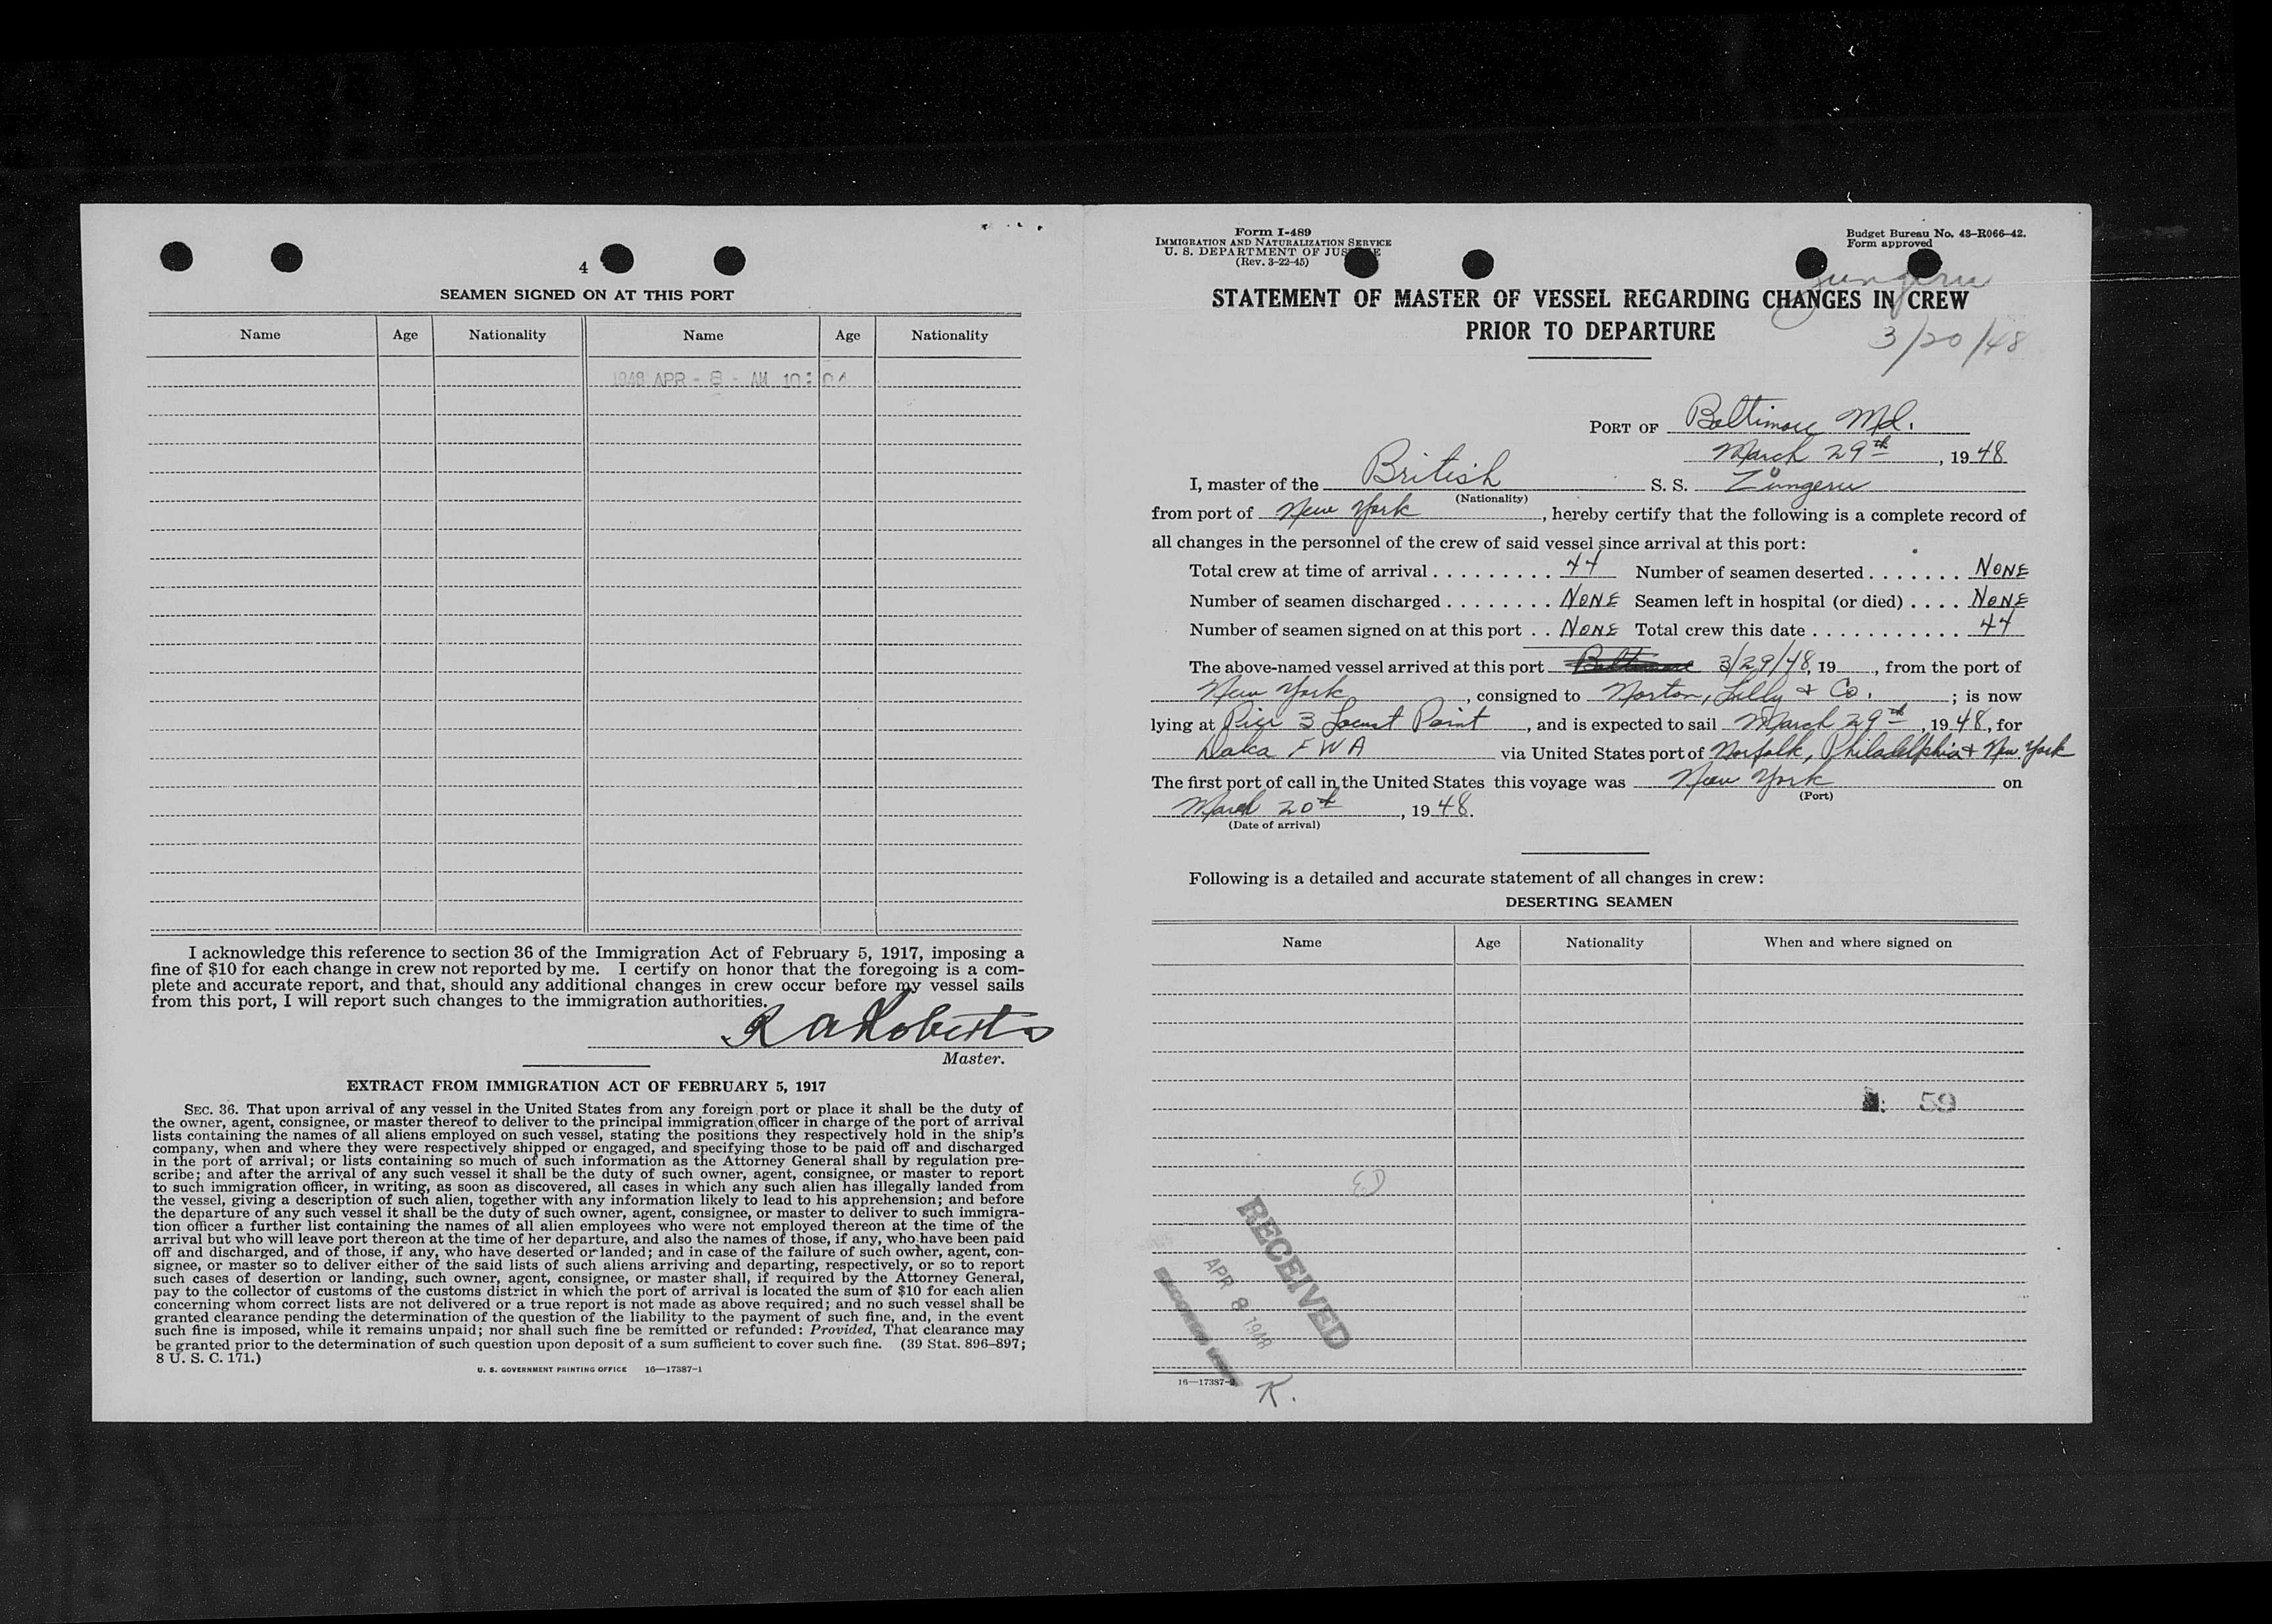 4
SEAMEN SIGNED ON AT THIS PORT
Name Age Nationality Name Age Nationality
1948 APR - 8 - AM 10: 04
I acknowledge this reference to section 36 of the Immigration Act of February 5, 1917, imposing a
fine of $10 for each change in crew not reported by me. I certify on honor that the foregoing is a com-
plete and accurate report, and that, should any additional changes in crew occur before my vessel sails
from this port, I will report such changes to the immigration authorities.
R A Roberts
Master.
EXTRACT FROM IMMIGRATION ACT OF FEBRUARY 5, 1917
SEC. 36. That upon arrival of any vessel in the United States from any foreign port or place it shall be the duty of
the owner, agent, consignee, or master thereof to deliver to the principal immigration officer in charge of the port of arrival
lists containing the names of all aliens employed on such vessel, stating the positions they respectively hold in the ship's
company, when and where they were respectively shipped or engaged, and specifying those to be paid off and discharged
in the port of arrival; or lists containing so much of such information as the Attorney General shall by regulation pre-
scribe; and after the arrival of any such vessel it shall be the duty of such owner, agent, consignee, or master to report
to such immigration officer, in writing, as soon as discovered, all cases in which any such alien has illegally landed from
the vessel, giving a description of such alien, together with any information likely to lead to his apprehension; and before
the departure of any such vessel it shall be the duty of such owner, agent, consignee, or master to deliver to such immigra-
tion officer a further list containing the names of all alien employees who were not employed thereon at the time of the
arrival but who will leave port thereon at the time of her departure, and also the names of those, if any, who have been paid
off and discharged, and of those, if any, who have deserted or landed; and in case of the failure of such owner, agent, con-
signee, or master so to deliver either of the said lists of such aliens arriving and departing, respectively, or so to report
such cases of desertion or landing, such owner, agent, consignee, or master shall, if required by the Attorney General,
pay to the collector of customs of the customs district in which the port of arrival is located the sum of $10 for each alien
concerning whom correct lists are not delivered or a true report is not made as above required; and no such vessel shall be
granted clearance pending the determination of the question of the liability to the payment of such fine, and, in the event
such fine is imposed, while it remains unpaid; nor shall such fine be remitted or refunded: Provided, That clearance may
be granted prior to the determination of such question upon deposit of a sum sufficient to cover such fine. (39 Stat. 896-897;
8 U. S. C. 171.)
U. S. GOVERNMENT PRINTING OFFICE 16—17387-1
Form I-489
IMMIGRATION AND NATURALIZATION SERVICE
U. S. DEPARTMENT OF JUSTICE
(Rev. 3-22-45)
Budget Bureau No. 43-R066-42.
Form approved
Zungeru
STATEMENT OF MASTER OF VESSEL REGARDING CHANGES IN CREW
PRIOR TO DEPARTURE
3/20/48
PORT OF Baltimore Md.
March 29th, 1948
I, master of the British S. S. Zungeru
(Nationality)
from port of New York, hereby certify that the following is a complete record of
all changes in the personnel of the crew of said vessel since arrival at this port:
Total crew at time of arrival . . . . . . . . . . 44 Number of seamen deserted . . . . . . . NONE
Number of seamen discharged . . . . . . . . NONE Seamen left in hospital (or died) . . . . NONE
Number of seamen signed on at this port . . NONE Total crew this date . . . . . . . . . . . . 44
The above-named vessel arrived at this port Baltimore 3/29/48, 19, from the port of
New York, consigned to Norton, Lilly & Co.; is now
lying at Pier 3 Locust Point, and is expected to sail March 29th, 1948, for
Daka F W A via United States port of Norfolk, Philadelphia & New York
The first port of call in the United States this voyage was New York on
(Port)
March 20th, 1948.
(Date of arrival)
Following is a detailed and accurate statement of all changes in crew:
DESERTING SEAMEN
Name Age Nationality When and where signed on
59
RECEIVED
APR 8 1948
16—17387-
K.